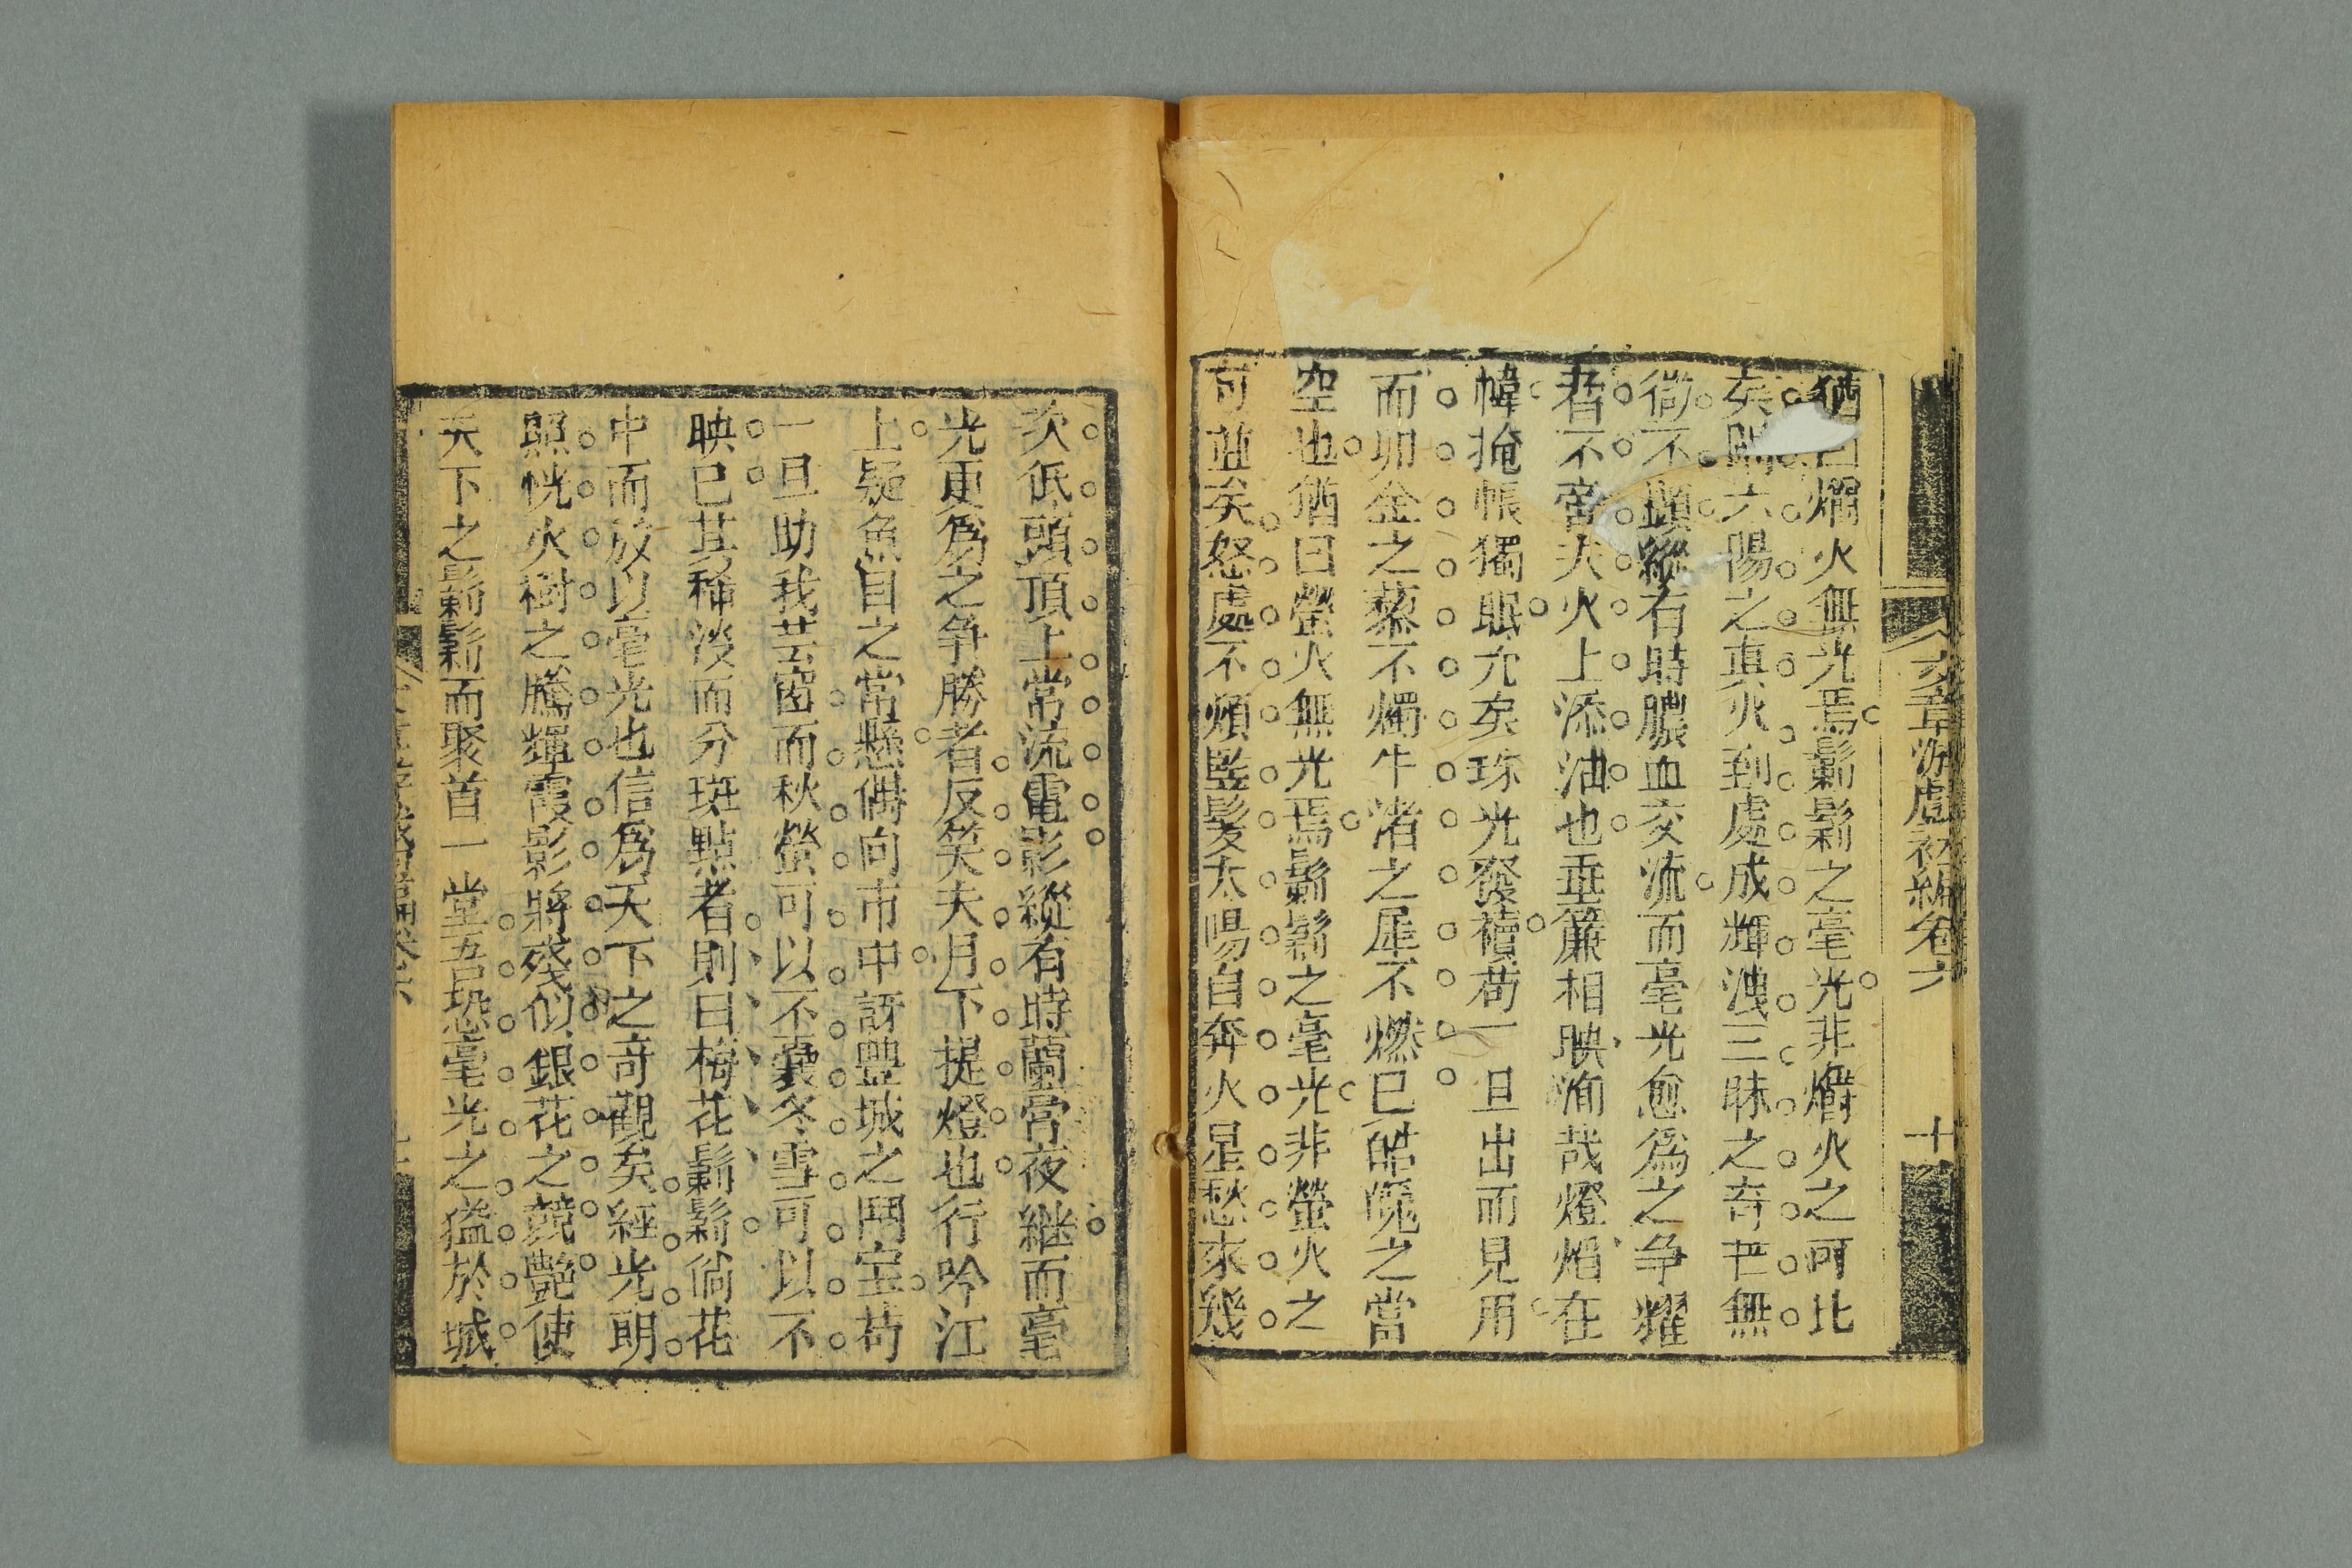 文章游戲初編卷六
十
猶曰爝火無光焉鬎鬎之毫光非爝火之可比
矣陽六陽之真火到處成輝洩三昧之奇芒無
微不顯縱有時膿血交流而毫光愈爲之争耀
者不啻大火上添油也垂簾相映洵哉燈焰在
幃掩帳獨眠允矣珠光發櫝苟一旦出而見用
而卯金之藜不燭牛渚之犀不燃已皓魄之當
空也猶曰螢火無光焉鬎鬎之毫光非螢火之
可並矣怒處不煩豎髮太陽自奔火星愁來幾
次低頭頂上常流電影縱有時蘭膏夜継而毫
光更爲之争勝者反笑夫月下提燈也行吟江
上疑魚目之常懸偶向市中訝豐城之鬥宝苟
一旦助我芸窗而秋螢可以不囊冬雪可以不
映已其稀淡而分斑點者則曰梅花鬎鬎尙花
中而放以毫光也信爲天下之奇觀矣經光明
照恍火樹之騰輝霞影將殘似銀花之競艷使
天下之鬎鬎而聚首一堂吾恐毫光之溢於城